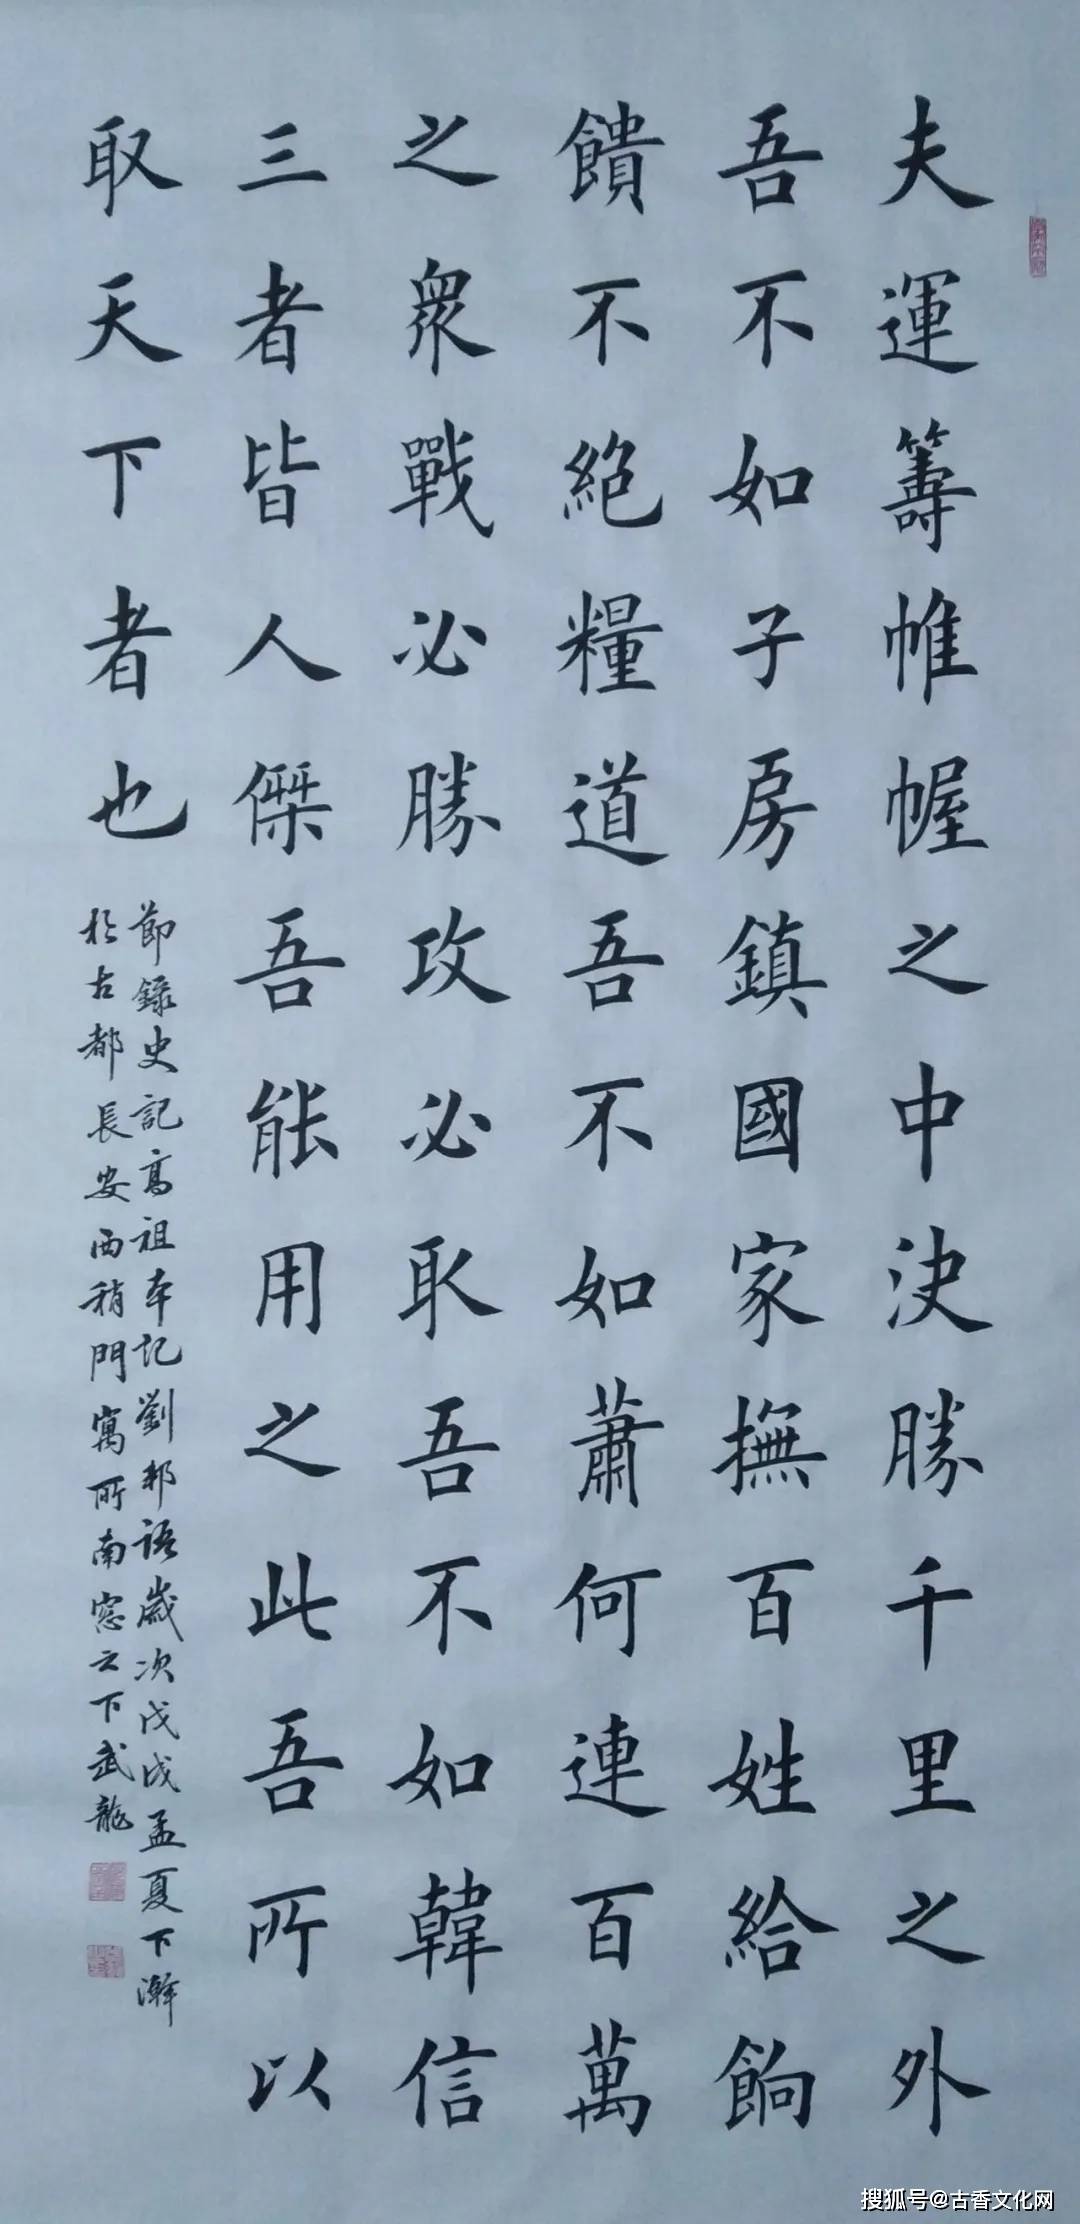 夫運籌帷幄之中決勝千里之外
吾不如子房鎮國家撫百姓給餉
饋不絕糧道吾不如蕭何連百萬
之衆戰必勝攻必取吾不如韓信
三者皆人傑吾能用之此吾所以
取天下者也
節錄史記高祖本記劉邦語歲次戊戌孟夏下澣
於古都長安西稍門寓所南窓之下武龍
搜狐号@古香文化网